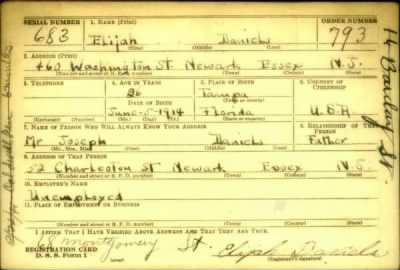 SERIAL NUMBER 1. NAME (Print) ORDER NUMBER
683 Elijah Daniels 793
(First) (Middle) (Last)
2. ADDRESS (Print)
460 Washington St Newark Essex N.J.
(Number and street or R. F. D. number) (Town) (County) (State)
3. TELEPHONE 4. AGE IN YEARS 5. PLACE OF BIRTH 6. COUNTRY OF CITIZENSHIP
26 Tampa
DATE OF BIRTH (Town or county)
June-5-1914 Florida U.S.A.
(Exchange) (Number) (Mo.) (Day) (Yr.) (State or country)
7. NAME OF PERSON WHO WILL ALWAYS KNOW YOUR ADDRESS 8. RELATIONSHIP OF THAT PERSON
Mr Joseph Daniels Father
(Mr., Mrs., Miss) (First) (Middle) (Last)
9. ADDRESS OF THAT PERSON
52 Charleston St Newark Essex N.J.
(Number and street or R. F. D. number) (Town) (County) (State)
10. EMPLOYER'S NAME
Unemployed
11. PLACE OF EMPLOYMENT OR BUSINESS
(Number and street or R. F. D. number) (Town) (County) (State)
I AFFIRM THAT I HAVE VERIFIED ABOVE ANSWERS AND THAT THEY ARE TRUE.
68 Montgomery St. Elijah Daniels
REGISTRATION CARD
D. S. S. Form 1 (Registrant's signature)